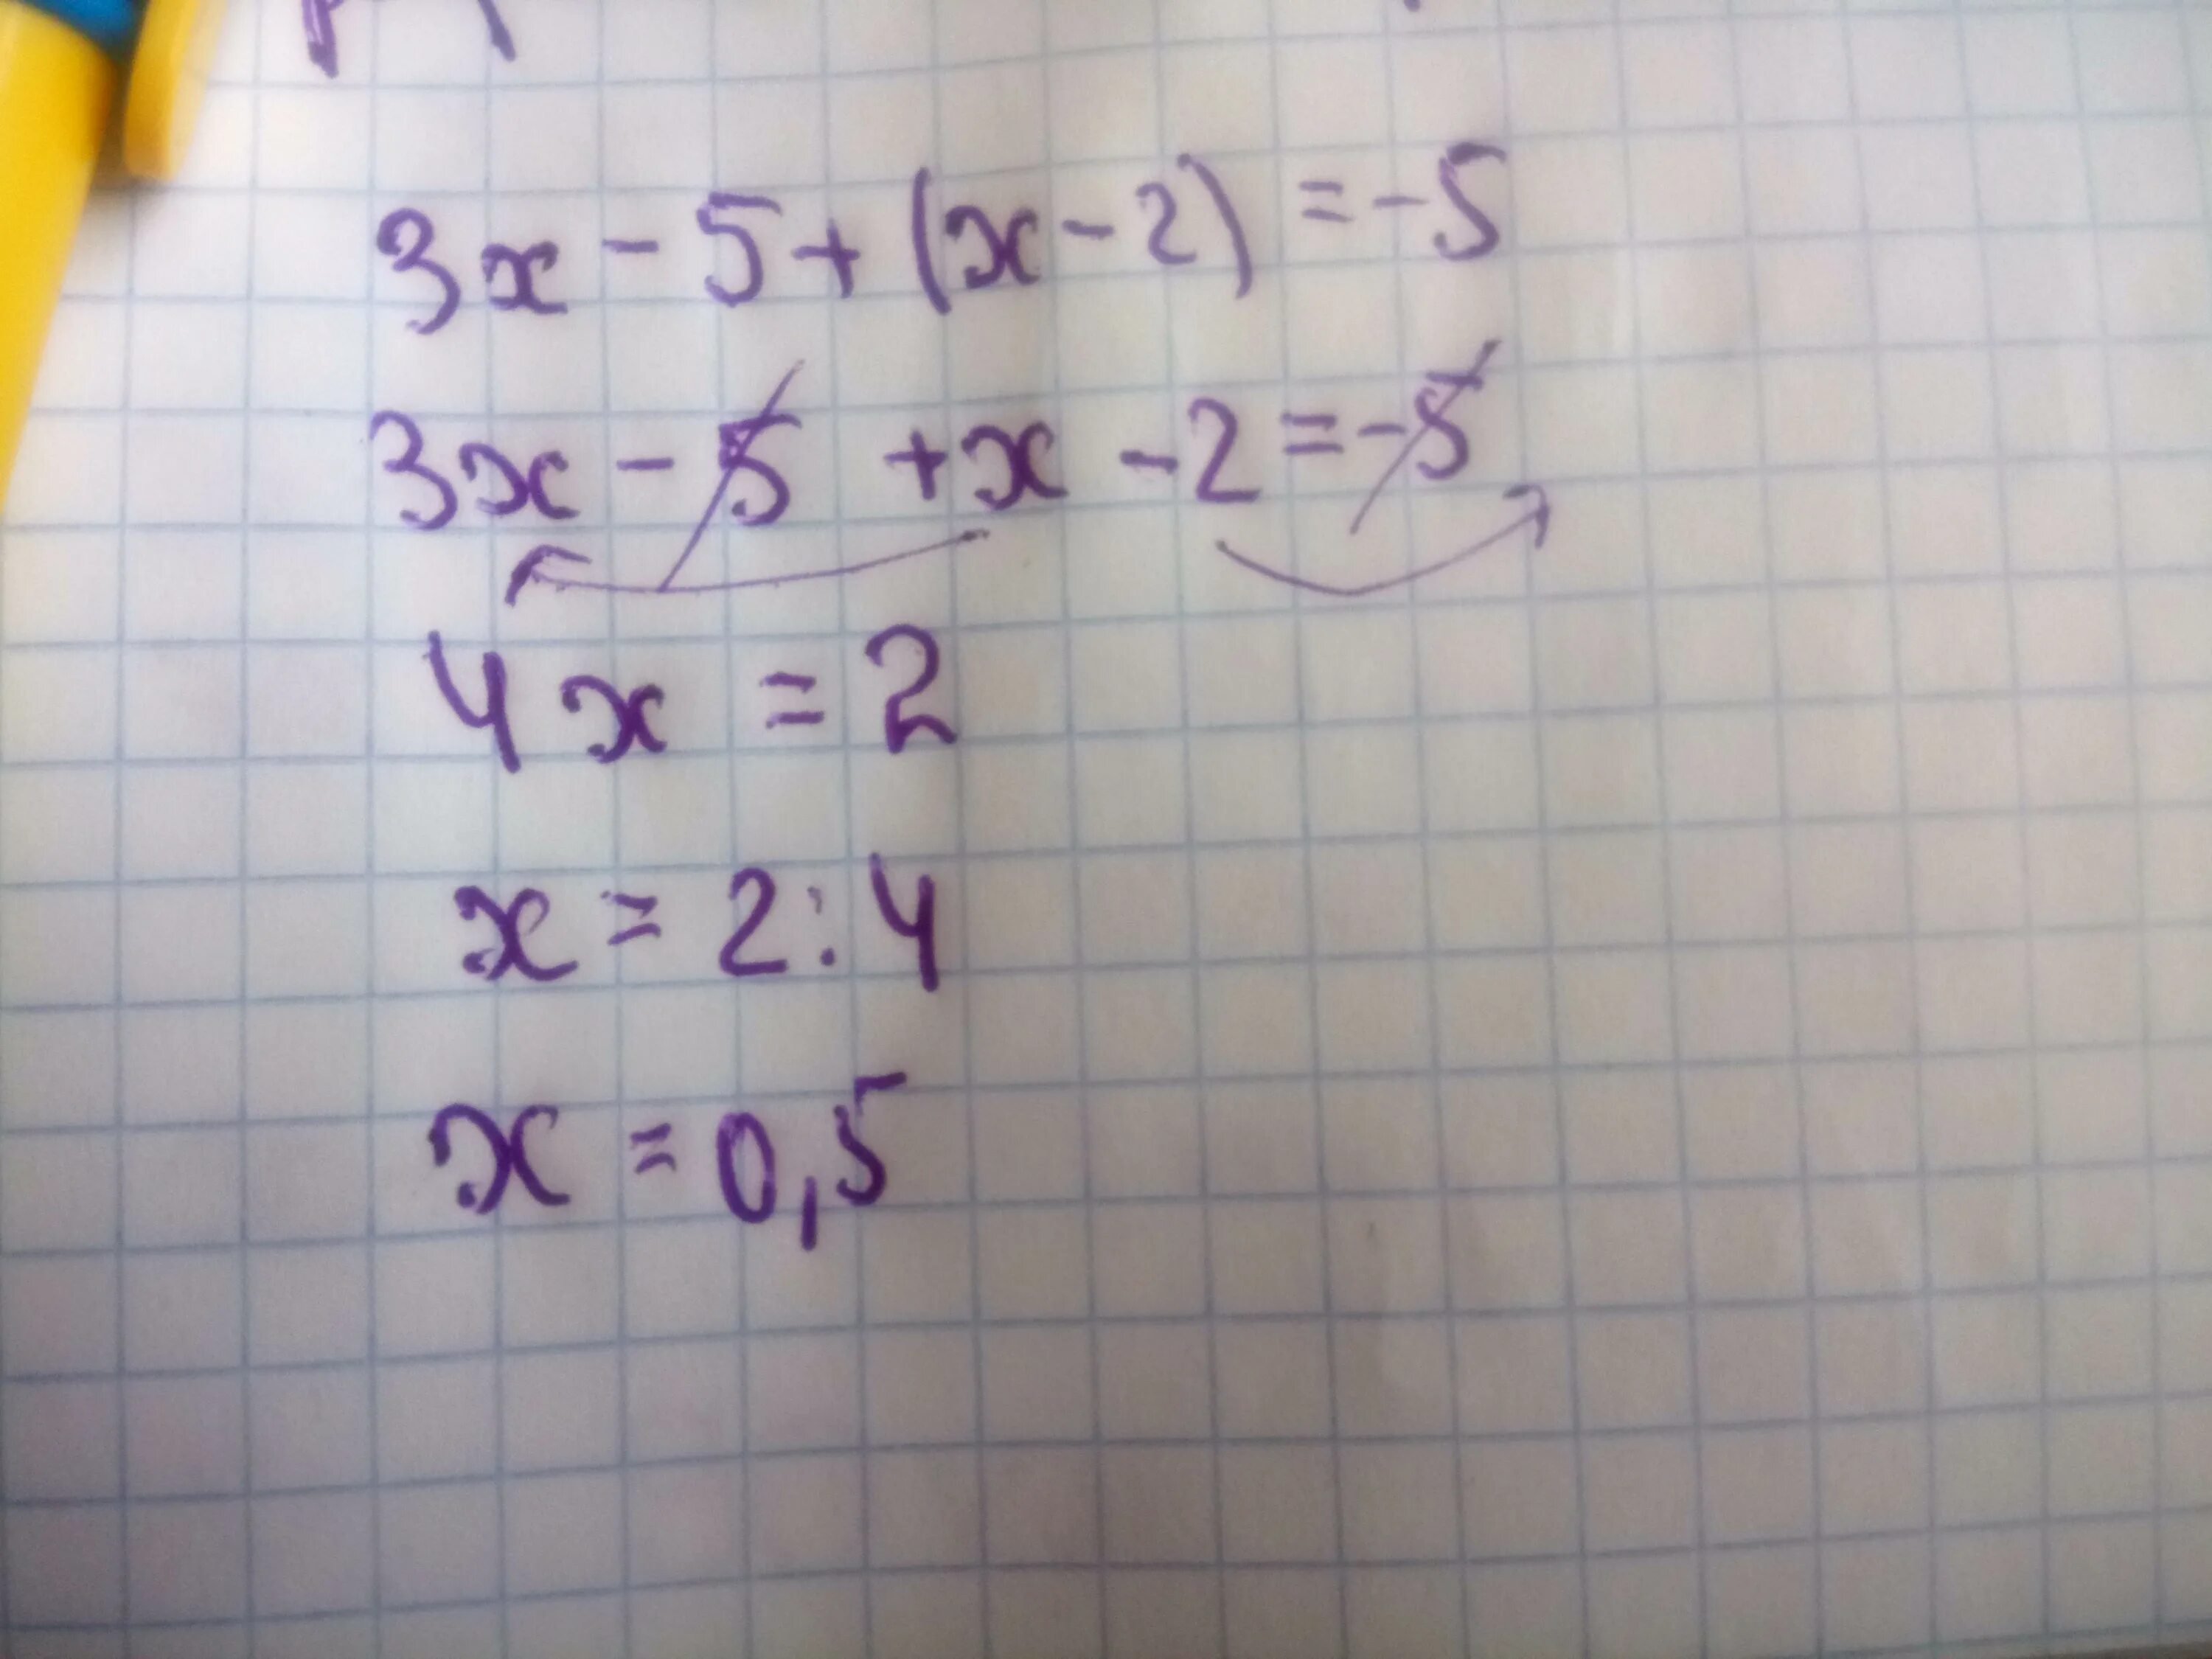 3x - 5 + (x - 2) = -5
3x - 5 + x - 2 = -5
4x = 2
x = 2 : 4
x = 0,5